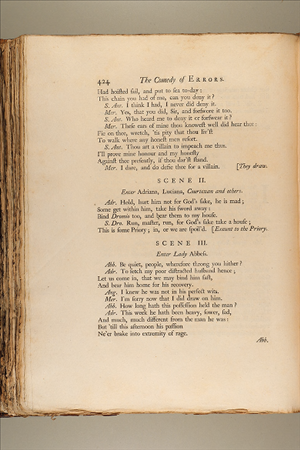 424 The Comedy of ERRORS.
Had hoisted sail, and put to sea to-day:
This chain you had of me, can you deny it?
S. Ant. I think I had, I never did deny it.
Mer. Yes, that you did, Sir, and forswore it too.
S. Ant. Who heard me to deny it or forswear it?
Mer. These ears of mine thou knowest well did hear thee:
Fie on thee, wretch, 'tis pity that thou liv'st
To walk where any honest men resort.
S. Ant. Thou art a villain to impeach me thus.
I'll prove mine honour and my honesty
Against thee presently, if thou dar'st stand.
Mer. I dare, and do defie thee for a villain. [They draw.
SCENE II.
Enter Adriana, Luciana, Courtezan and others.
Adr. Hold, hurt him not for God's sake, he is mad;
Some get within him, take his sword away:
Bind Dromio too, and bear them to my house.
S. Dro. Run, master, run, for God's sake take a house;
This is some Priory; in, or we are spoil'd. [Exeunt to the Priory.
SCENE III.
Enter Lady Abbess.
Abb. Be quiet, people, wherefore throng you hither?
Adr. To fetch my poor distracted husband hence;
Let us come in, that we may bind him fast,
And bear him home for his recovery.
Ang. I knew he was not in his perfect wits.
Mer. I'm sorry now that I did draw on him.
Abb. How long hath this possession held the man?
Adr. This week he hath been heavy, sower, sad,
And much, much different from the man he was:
But 'till this afternoon his passion
Ne'er brake into extremity of rage.
Abb.